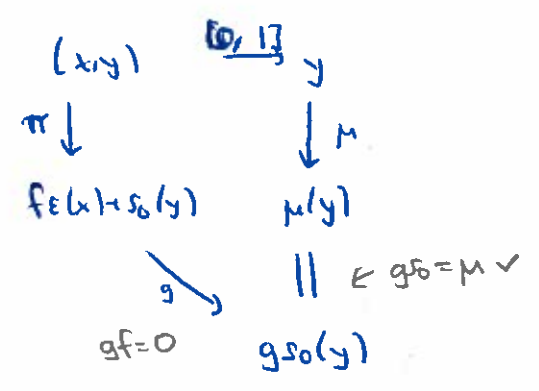 (x,y) [0, 1] y
π ↓ ↓ μ
fε(x)+s₀(y) μ(y)
g ↘ || ← gs₀=μ ✓
gf=0 gs₀(y)